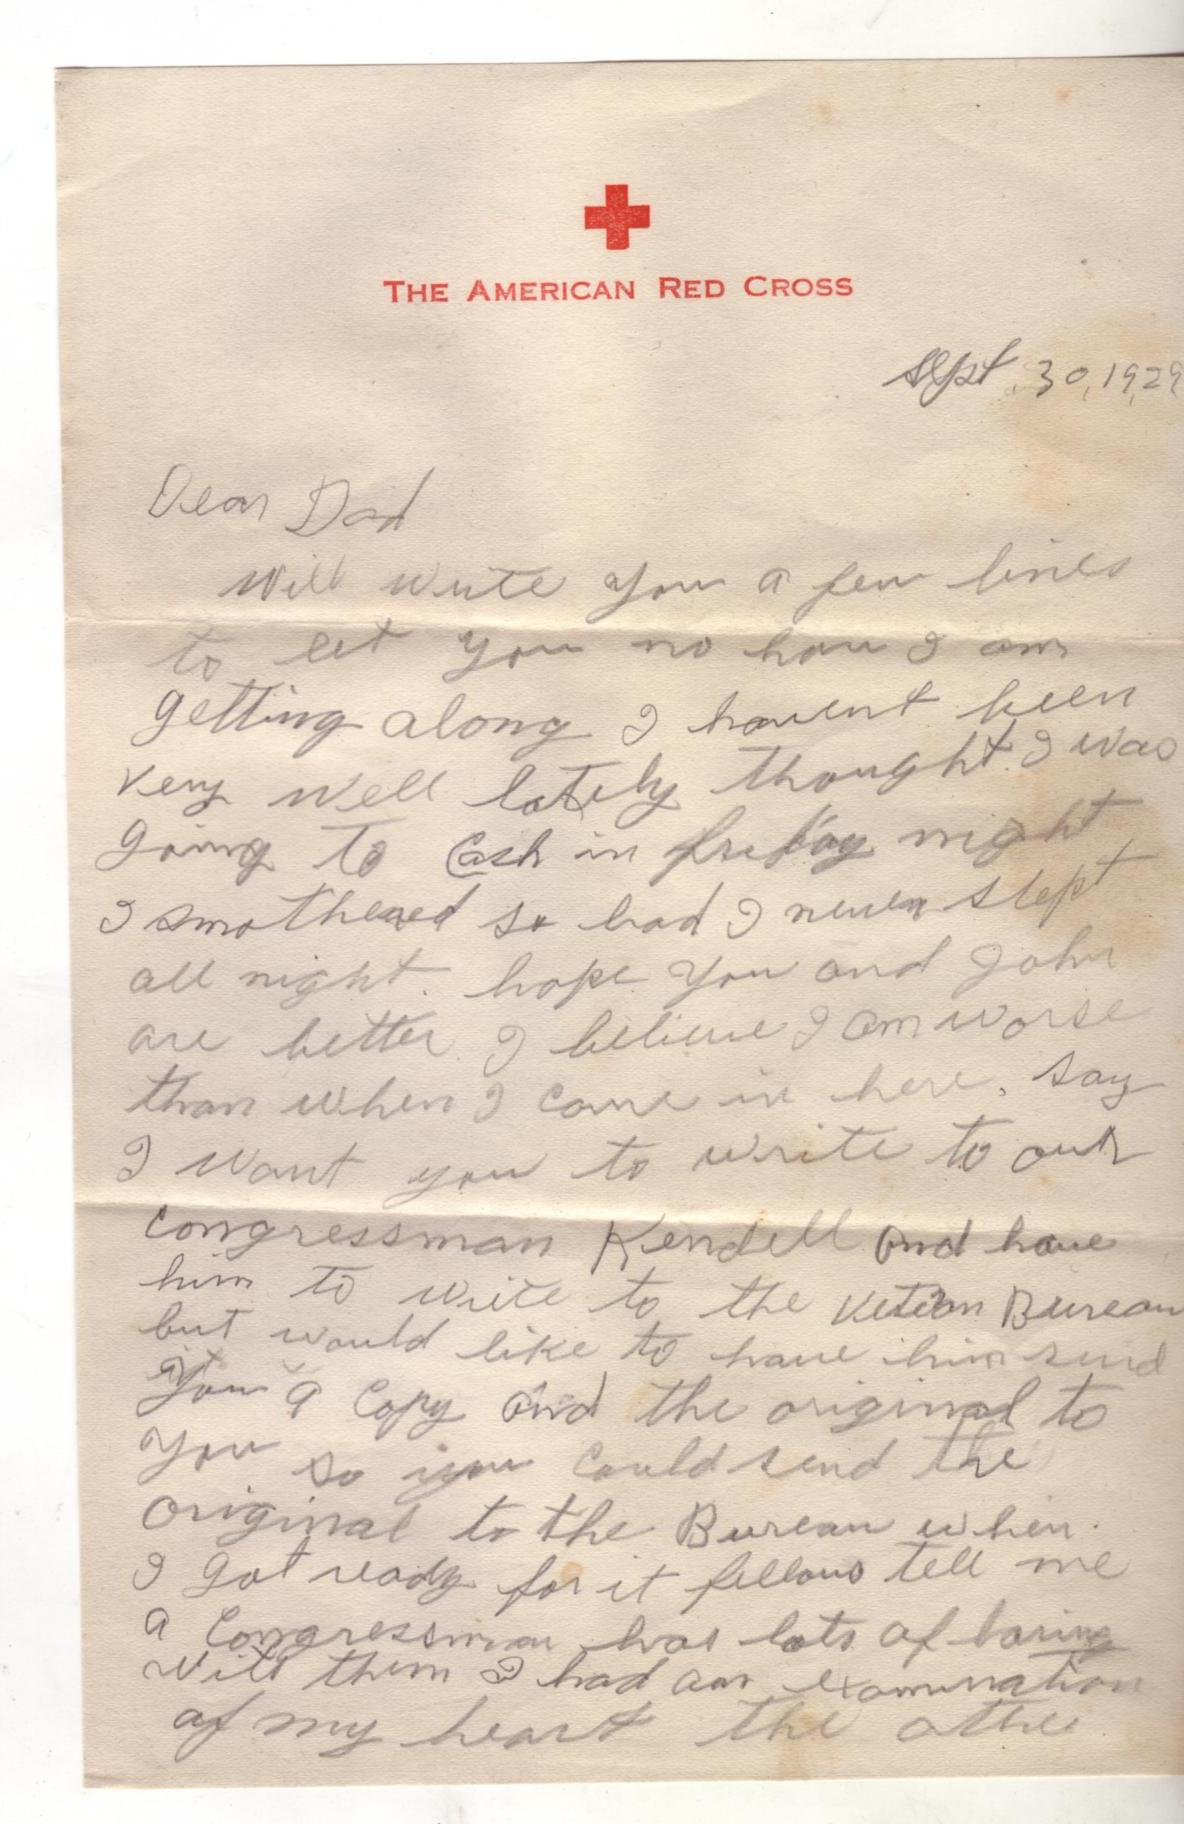 THE AMERICAN RED CROSS
Sept. 30, 1929
Dear Dad
Will write you a few lines
to let you no how I am
getting along I havent been
very well lately thought I was
going to cash in friday night
I smothered so bad I never slept
all night. hope you and John
are better. I believe I am worse
than when I come in here. say
I want you to write to our
congressman Kendell and have
him to write to the Bureau
but would like to have him send
you a copy and the original to
you so you could send the
original to the Bureau when
I got ready for it fellows tell me
a Congressman has lots of baring
with them I had an examination
of my heart the othe